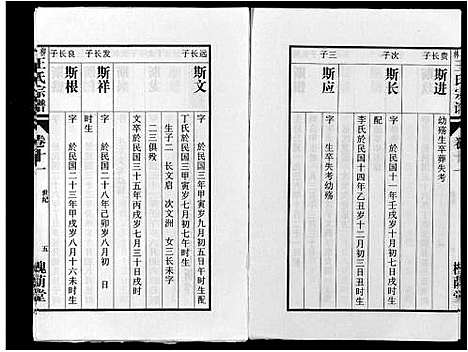 贵长子
斯进
幼殇生卒葬失考
次子
斯长
字 於民国十一年壬戌岁十二月初七日亥时生配
李氏於民国十四年乙丑岁十二月初三日丑时生
三子
斯应
字 生卒失考幼殇
远长子
斯文
字 於民国三年甲寅岁九月初五日午时生配
丁氏於民国三年甲寅岁七月初七日午时生
生子二 长文启 次文洲 女三长未字
二三俱殁
文卒於民国三十五年丙戌岁七月三十日戌时
发长子
斯祥
字 於民国二十八年己卯岁八月初 日
时生
良长子
斯根
字 於民国二十三年甲戌岁八月十六未时生
王氏宗谱
卷十一
世纪
五
槐荫堂